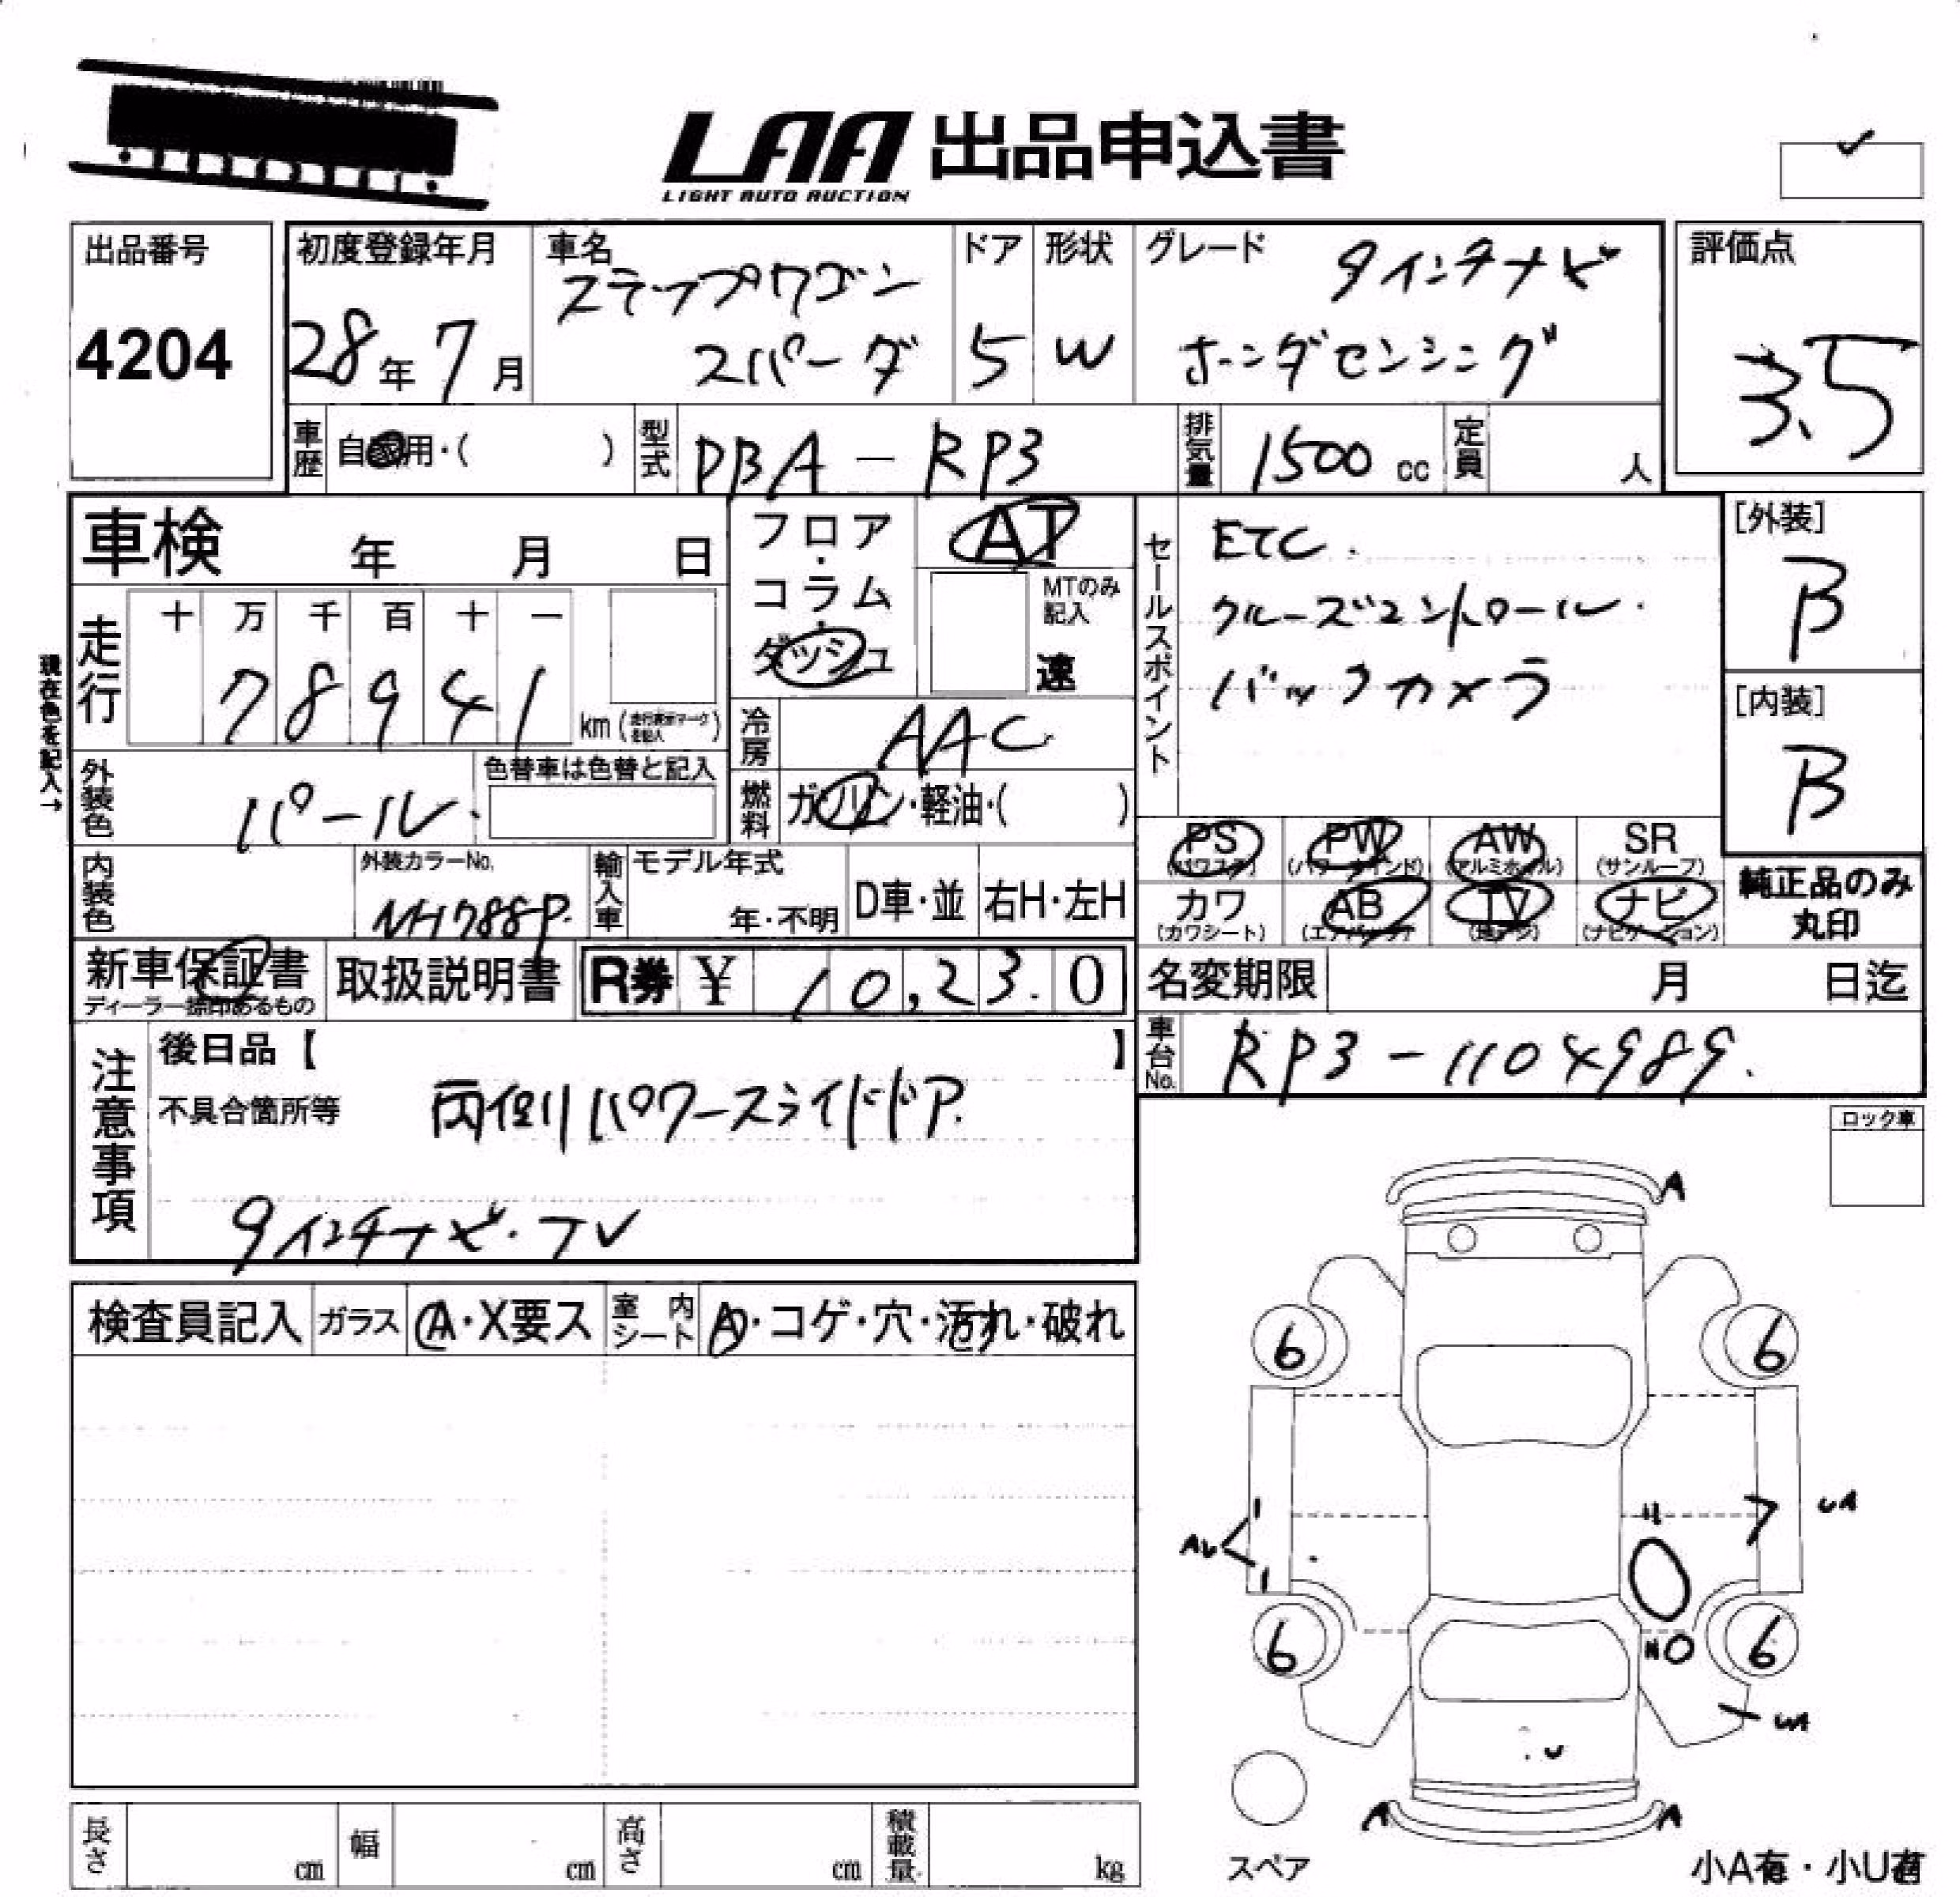 LAA 出品申込書
LIGHT AUTO AUCTION
出品番号
4204
初度登録年月
28年7月
車名
ステップワゴン
スパーダ
ドア
5
形状
W
グレード
9インチナビ
ホンダセンシング
評価点
3.5
車歴
自家用・( )
型式
DBA-RP3
排気量
1500 cc
定員
人
車検 年 月 日
走行
十 万 千 百 十 一
7 8 9 4 1
km (走行表示マーク を記入)
現在色を記入→
フロア・コラム・ダッシュ
AT
MTのみ
記入
速
冷房
AAC
燃料
ガソリン・軽油・( )
セールスポイント
ETC.
クルーズコントロール.
バックカメラ
[外装]
B
[内装]
B
外装色
パール.
色替車は色替と記入
内装色
外装カラーNo.
NH788P.
輸入車
モデル年式
年・不明
D車・並
右H・左H
PS
(パワステ)
PW
(パワーウインド)
AW
(アルミホイル)
SR
(サンルーフ)
カワ
(カワシート)
AB
(エアバッグ)
TV
(地デジ)
ナビ
(ナビゲーション)
純正品のみ
丸印
新車保証書
ディーラー捺印あるもの
取扱説明書
R券 ¥ 10,23.0
名変期限 月 日迄
車台No.
RP3-1104989.
注意事項
後日品【 】
不具合箇所等
両側パワースライドドア.
9インチナビ.TV
ロック車
検査員記入
ガラス
A・X要ス
室内シート
A・コゲ・穴・汚れ・破れ
A
6 6
AU
UA
6 6
UA
U
A A
スペア
小A有・小U有
長さ cm
幅 cm
高さ cm
積載量 kg